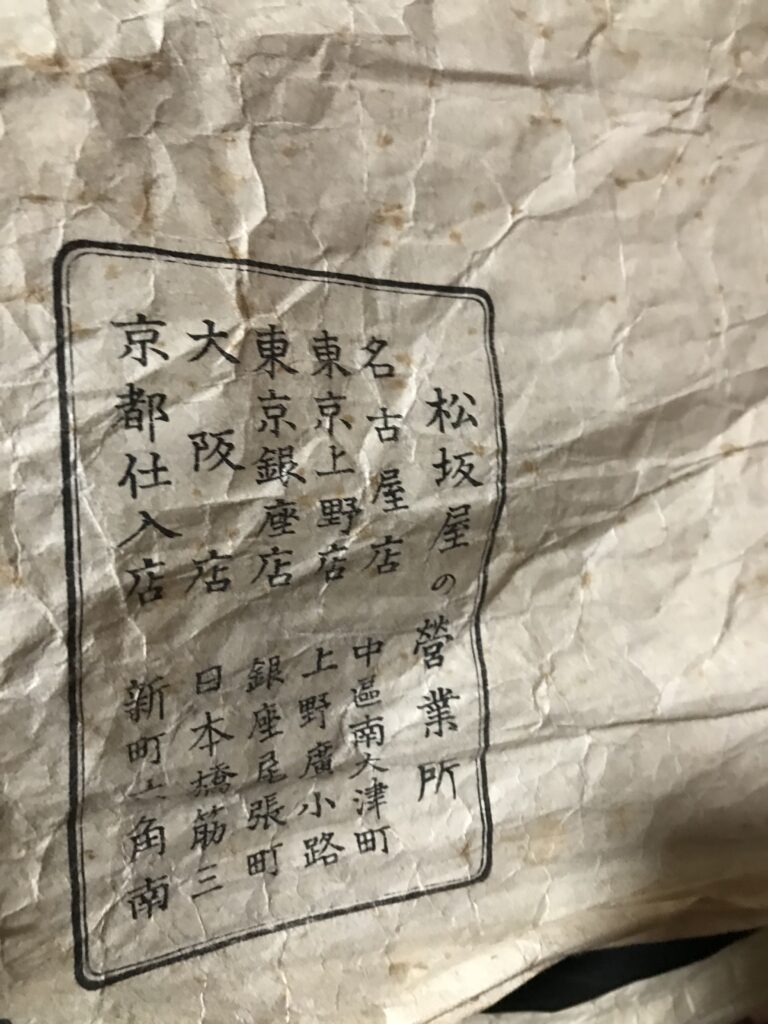 松坂屋の營業所
名古屋店 中區南大津町
東京上野店 上野廣小路
東京銀座店 銀座尾張町
大阪店 日本橋筋三
京都仕入店 新町六角南